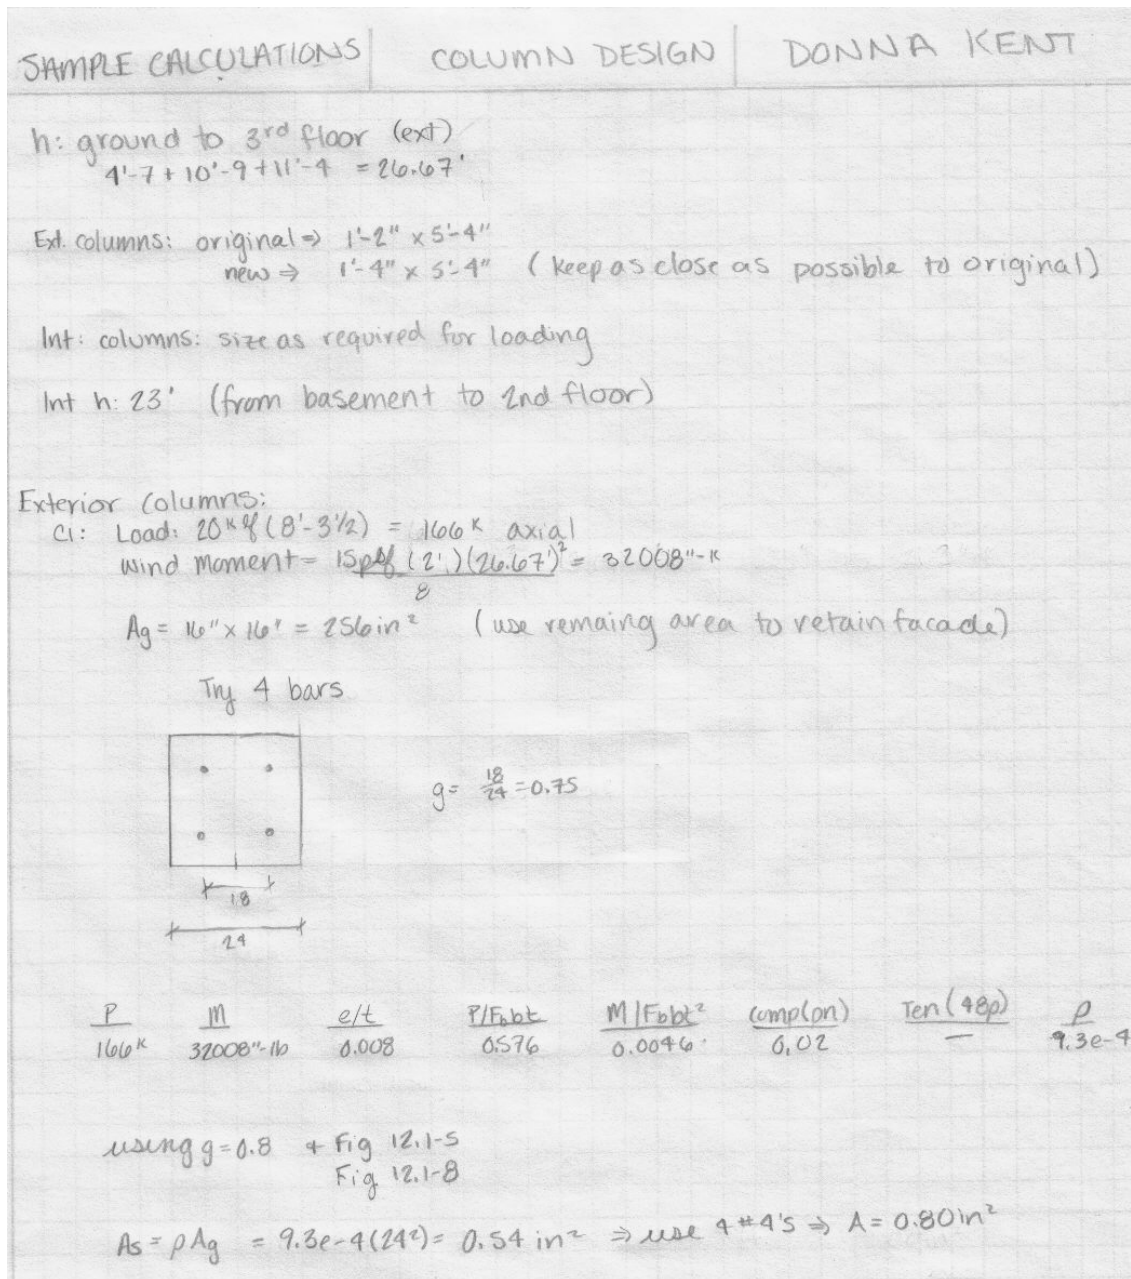 SAMPLE CALCULATIONS | COLUMN DESIGN | DONNA KENT
h: ground to 3rd floor (ext)
4'-7 + 10'-9 + 11'-4 = 26.67'
Ext. columns: original ⇒ 1'-2" x 5'-4"
new ⇒ 1'-4" x 5'-4" (keep as close as possible to original)
Int: columns: size as required for loading
Int h: 23' (from basement to 2nd floor)
Exterior Columns:
C1: Load: 20 (8'-3 1/2) = 166 K axial
Wind Moment = 15psf (2')(26.67')² = 32008"-K
8
Ag = 16" x 16" = 256in² (use remaing area to retain facade)
Try 4 bars
g = 18/24 = 0.75
18
24
P M e/t P/Fbbt M/Fbbt² comp(pn) Ten(48p) ρ
166K 32008"-lb 0.008 0.576 0.0046 0.02 — 9.3e-4
using g=0.8 + Fig 12.1-5
Fig 12.1-8
As = ρAg = 9.3e-4(24²) = 0.54 in² ⇒ use 4 #4's ⇒ A = 0.80in²